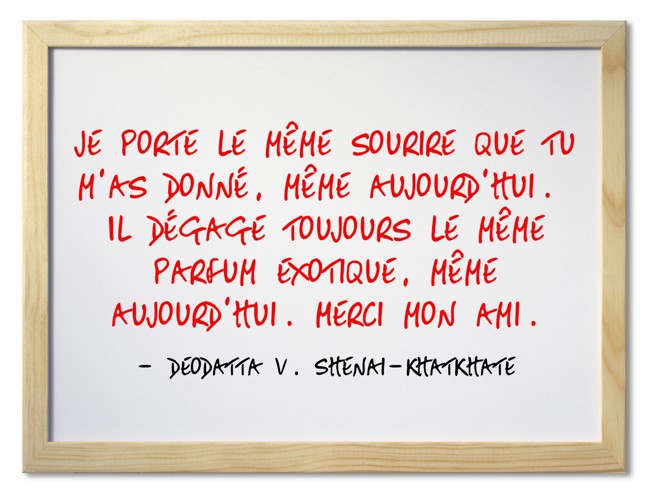 JE PORTE LE MÊME SOURIRE QUE TU
M'AS DONNÉ, MÊME AUJOURD'HUI.
IL DÉGAGE TOUJOURS LE MÊME
PARFUM EXOTIQUE, MÊME
AUJOURD'HUI. MERCI MON AMI.
- DEODATTA V. SHENAI-KHATKHATE